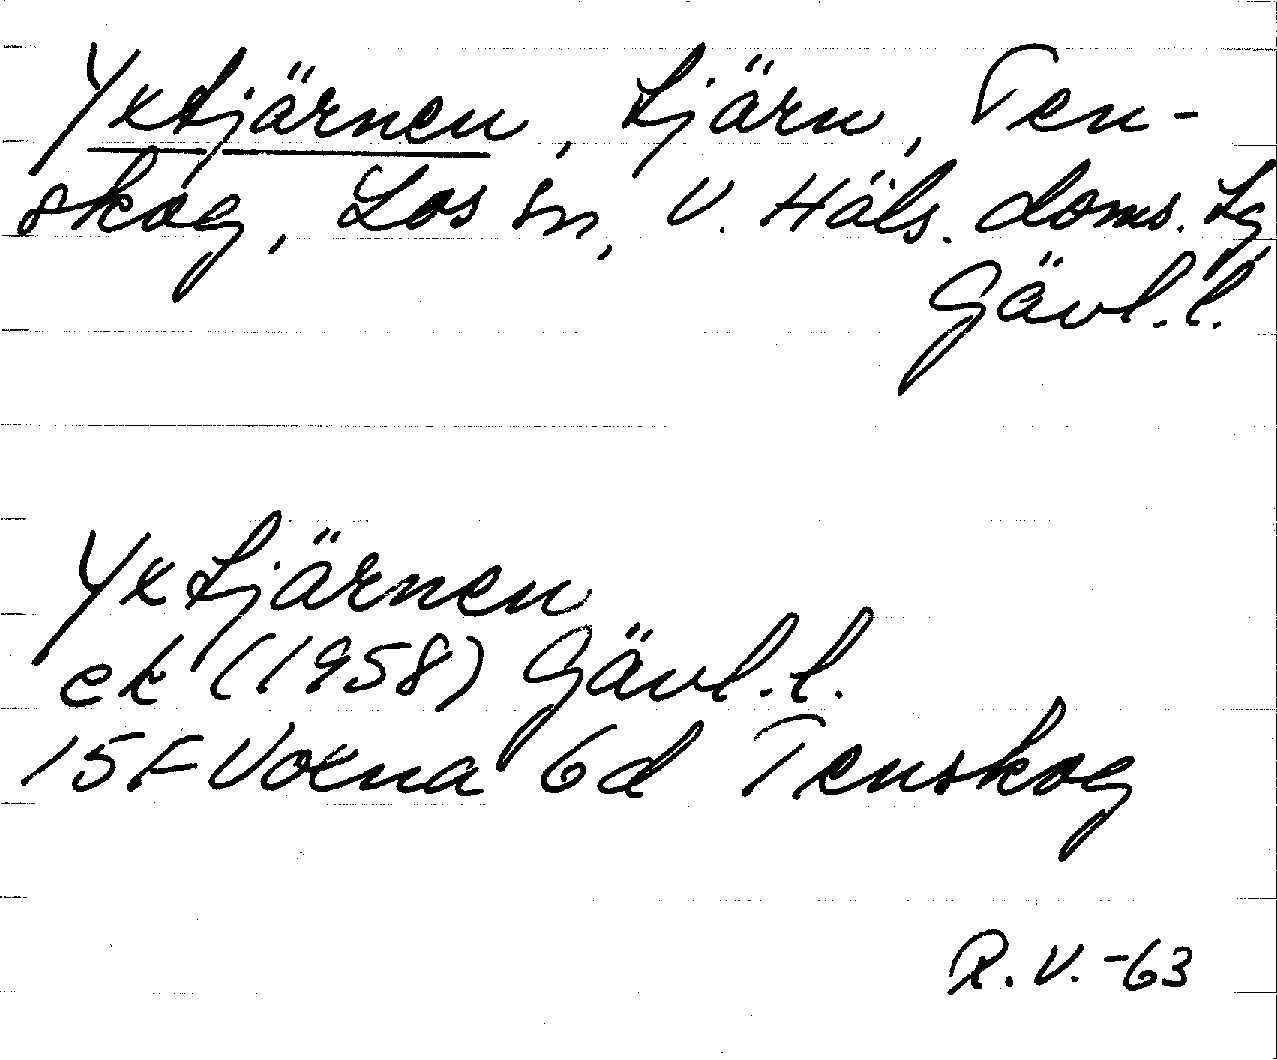 Yxtjärnen, tjärn, Ten-
skog, Los sn, V. Häls. doms. tg,
Gävl. l.
Yxtjärnen
ek (1958) Gävl. l.
15F Voxna 6d Tenskog
R. V. -63